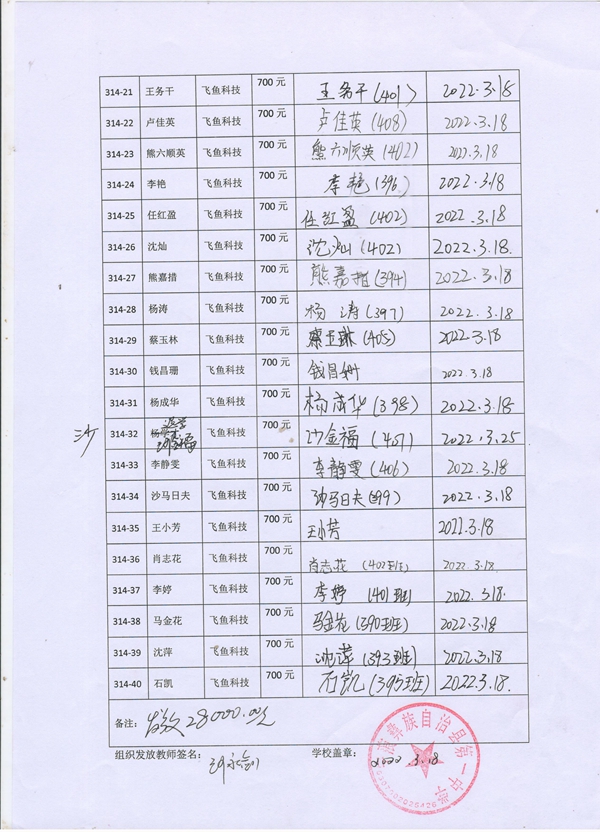 314-21 王务干 飞鱼科技 700 元 王务干(401) 2022.3.18
314-22 卢佳英 飞鱼科技 700 元 卢佳英(408) 2022.3.18
314-23 熊六顺英 飞鱼科技 700 元 熊六顺英(402) 2022.3.18
314-24 李艳 飞鱼科技 700 元 李艳(396) 2022.3.18
314-25 任红盈 飞鱼科技 700 元 任红盈(402) 2022.3.18
314-26 沈灿 飞鱼科技 700 元 沈灿(402) 2022.3.18.
314-27 熊嘉措 飞鱼科技 700 元 熊嘉措(394) 2022.3.18.
314-28 杨涛 飞鱼科技 700 元 杨涛(397) 2022.3.18
314-29 蔡玉林 飞鱼科技 700 元 蔡玉琳(405) 2022.3.18
314-30 钱昌珊 飞鱼科技 700 元 钱昌珊 2022.3.18
314-31 杨成华 飞鱼科技 700 元 杨成华(398) 2022.3.18
沙 314-32 杨 飞鱼科技 700 元 沙金福(407) 2022.3.25
314-33 李静雯 飞鱼科技 700 元 李静雯(406) 2022.3.18
314-34 沙马日夫 飞鱼科技 700 元 沙马日夫(399) 2022.3.18
314-35 王小芳 飞鱼科技 700 元 王小芳 2022.3.18
314-36 肖志花 飞鱼科技 700 元 肖志花(402班) 2022.3.18.
314-37 李婷 飞鱼科技 700 元 李婷 401班) 2022.3.18.
314-38 马金花 飞鱼科技 700 元 马金花(390班) 2022.3.18.
314-39 沈萍 飞鱼科技 700 元 沈萍(393班) 2022.3.18
314-40 石凯 飞鱼科技 700 元 石凯(395班) 2022.3.18.
备注: 28000.00元
组织发放教师签名: 学校盖章: 2022.3.18
彝族自治县第一中学